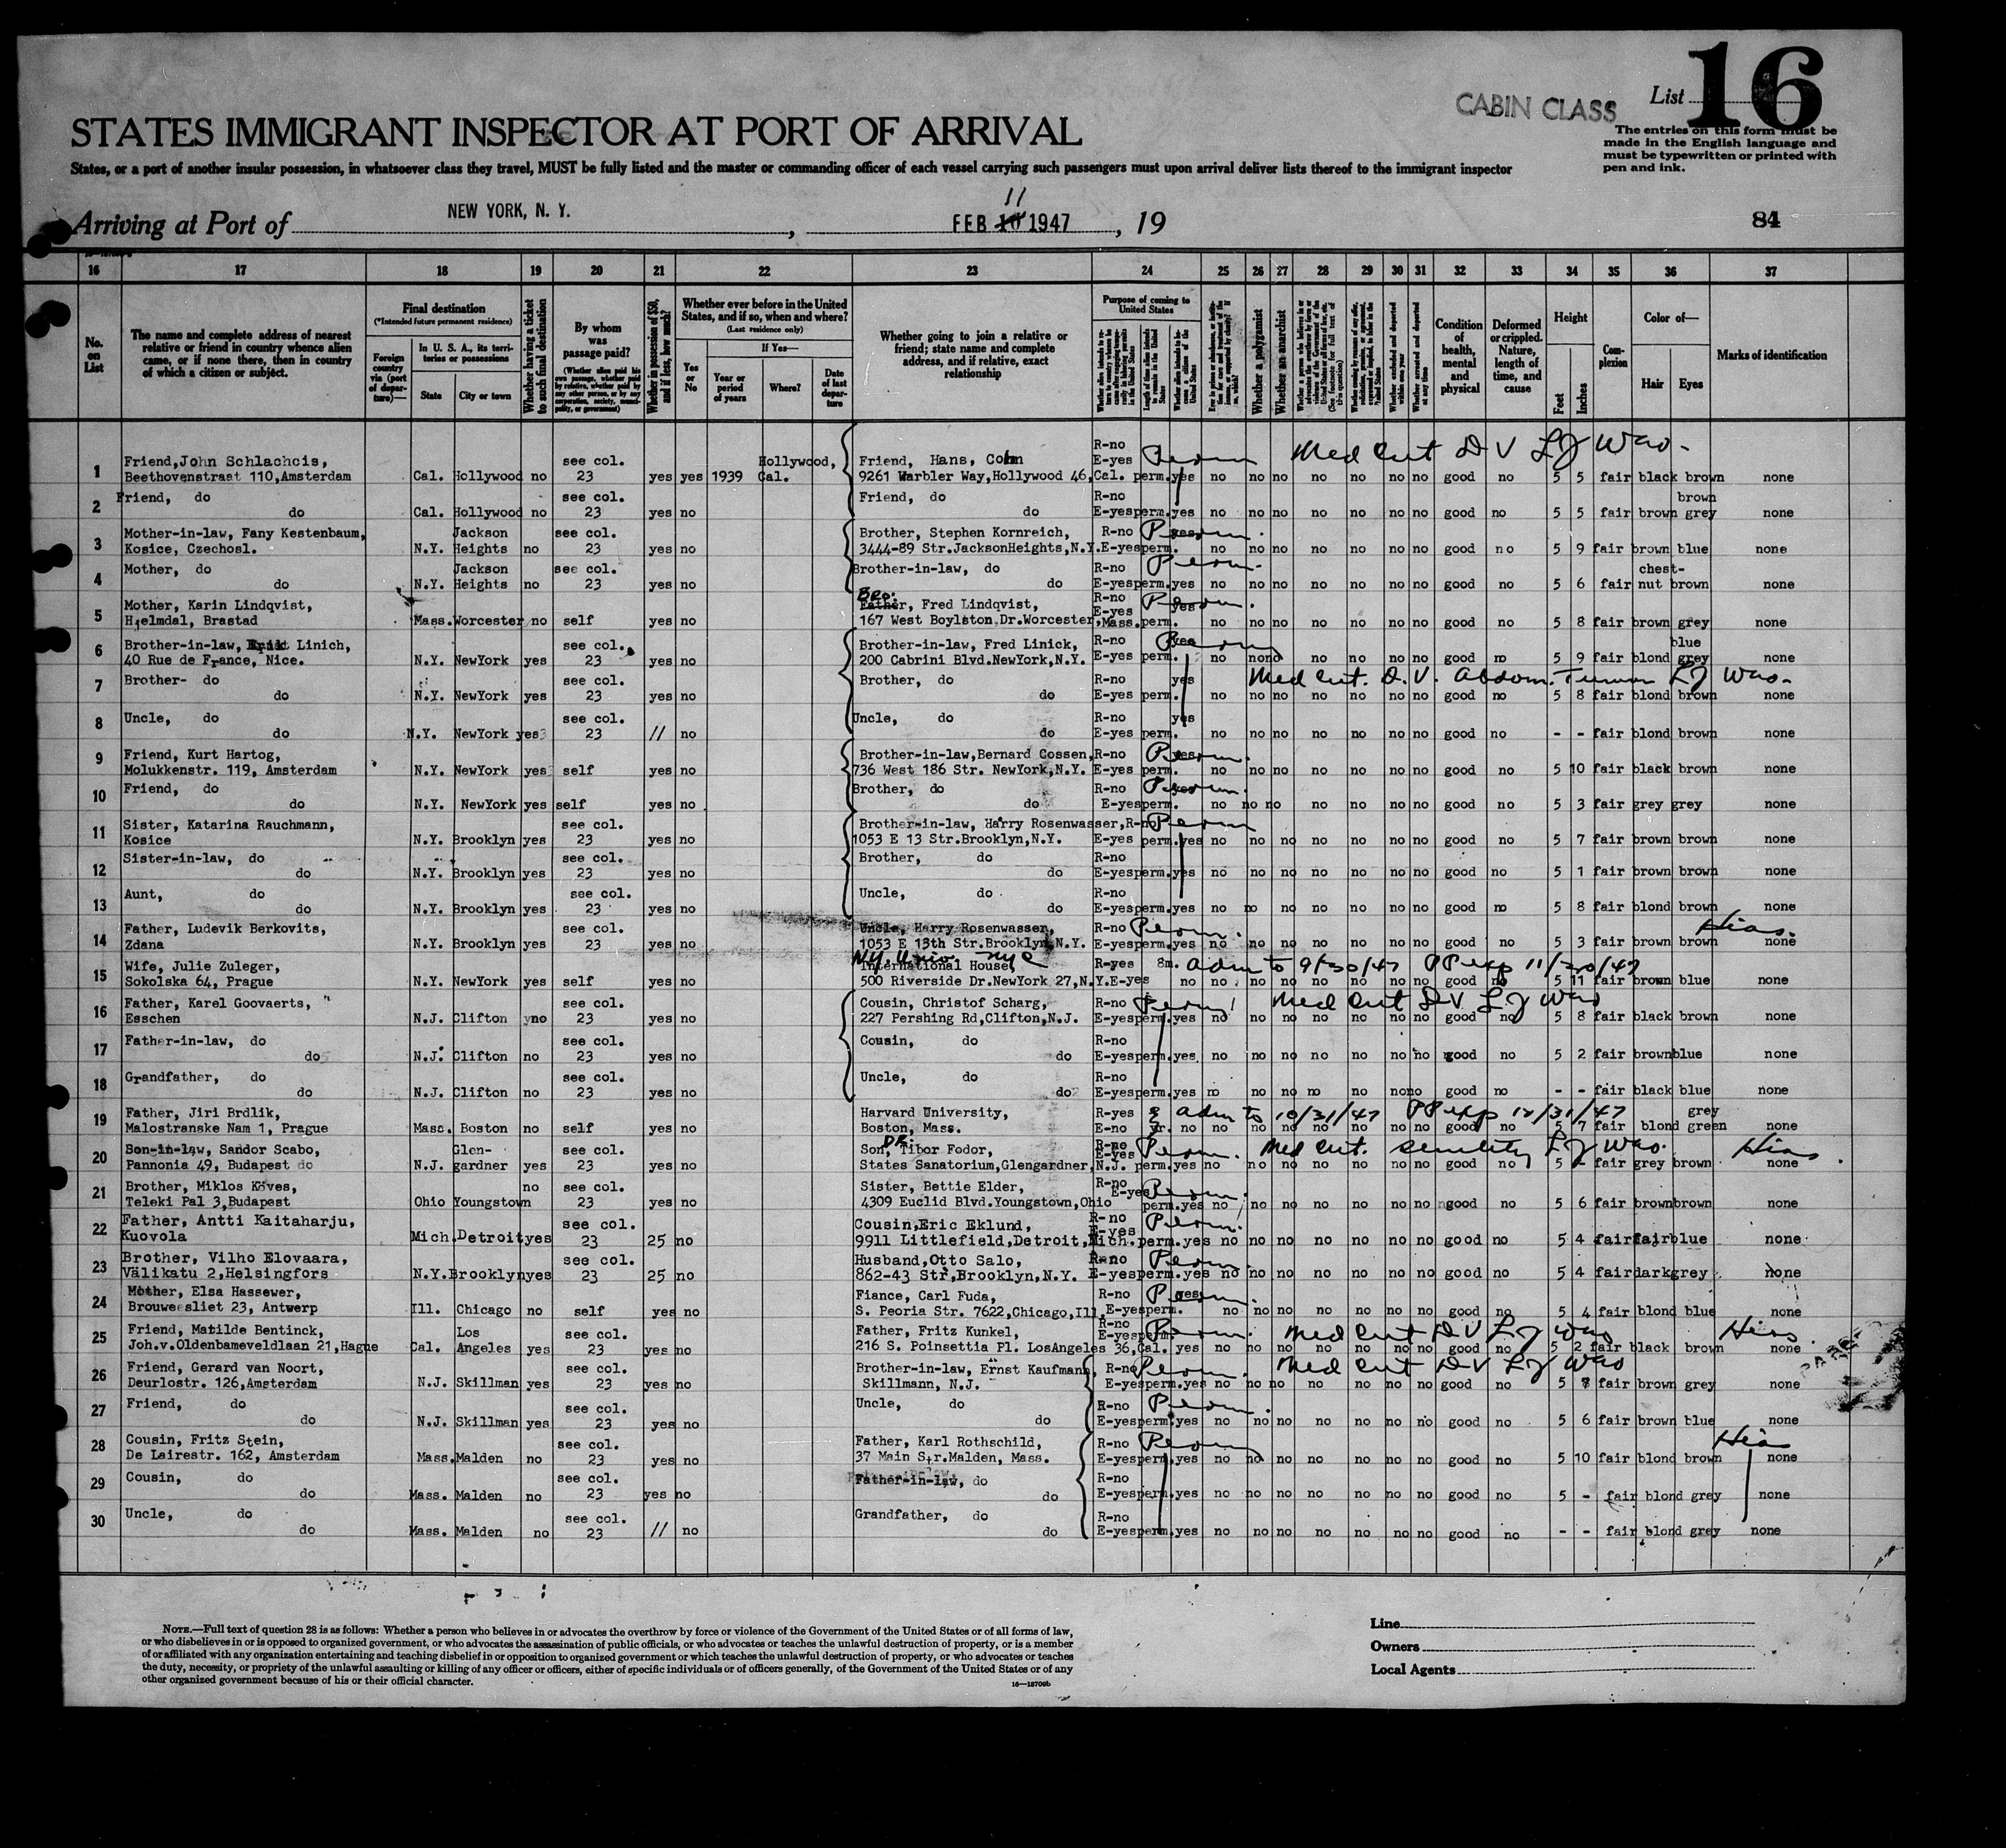 CABIN CLASS
List 16
STATES IMMIGRANT INSPECTOR AT PORT OF ARRIVAL
The entries on this form must be
made in the English language and
must be typewritten or printed with
pen and ink.
States, or a port of another insular possession, in whatsoever class they travel, MUST be fully listed and the master or commanding officer of each vessel carrying such passengers must upon arrival deliver lists thereof to the immigrant inspector
Arriving at Port of NEW YORK, N. Y. , FEB 10 11 1947 , 19 84
16 17 18 19 20 21 22 23 24 25 26 27 28 29 30 31 32 33 34 35 36 37
No. on List
The name and complete address of nearest relative or friend in country whence alien came, or if none there, then in country of which a citizen or subject.
Final destination
(*Intended future permanent residence)
Foreign country via (port of departure)—
In U. S. A., its territories or possessions
State City or town
Whether having a ticket to such final destination
By whom was passage paid?
(Whether alien paid his own passage, whether paid by relative, whether paid by any other person, or by any corporation, society, municipality, or government)
Whether in possession of $50, and if less, how much?
Whether ever before in the United States, and if so, when and where?
(Last residence only)
Yes or No
If Yes—
Year or period of years
Where?
Date of last departure
Whether going to join a relative or friend; state name and complete address, and if relative, exact relationship
Purpose of coming to United States
Whether a polygamist
Whether an anarchist
Condition of health, mental and physical
Deformed or crippled. Nature, length of time, and cause
Height
Feet Inches
Complexion
Color of—
Hair Eyes
Marks of identification
1 Friend, John Schlachcis, Beethovenstraat 110, Amsterdam Cal. Hollywood no see col. 23 yes yes 1939 Hollywood, Cal. Friend, Hans, Cohn 9261 Warbler Way, Hollywood 46, Cal. R-no E-yes perm. yes no no no no no no no good no 5 5 fair black brown none
Med Cert D V LJ Wao.
2 Friend, do do Cal. Hollywood no see col. 23 yes no Friend, do do R-no E-yes perm. yes no no no no no no no good no 5 5 fair brown brown grey none
3 Mother-in-law, Fany Kestenbaum, Kosice, Czechosl. N.Y. Jackson Heights no see col. 23 yes no Brother, Stephen Kornreich, 3444-89 Str. Jackson Heights, N.Y. R-no E-yes perm. yes no no no no no no no good no 5 9 fair brown blue none
4 Mother, do do N.Y. Jackson Heights no see col. 23 yes no Brother-in-law, do do R-no E-yes perm. yes no no no no no no no good no 5 6 fair chest-nut brown none
5 Mother, Karin Lindqvist, Hjelmdal, Brastad Mass. Worcester no self yes no Bro: Father, Fred Lindqvist, 167 West Boylston Dr. Worcester, Mass. R-no E-yes perm. yes no no no no no no no good no 5 8 fair brown grey none
6 Brother-in-law, Linich, 40 Rue de France, Nice. N.Y. NewYork yes see col. 23 yes no Brother-in-law, Fred Linick, 200 Cabrini Blvd. NewYork, N.Y. R-no E-yes perm. yes no no no no no no no good no 5 9 fair blond blue grey none
7 Brother- do do N.Y. NewYork yes see col. 23 yes no Brother, do do R-no E-yes perm. yes no no no no no no no good no 5 8 fair blond brown none
Med Cert. D.V. Abdom. Tumor LJ Wao.
8 Uncle, do do N.Y. NewYork yes see col. 23 // no Uncle, do do R-no E-yes perm. yes no no no no no no no good no - - fair blond brown none
9 Friend, Kurt Hartog, Molukkenstr. 119, Amsterdam N.Y. NewYork yes self yes no Brother-in-law, Bernard Cossen, 736 West 186 Str. NewYork, N.Y. R-no E-yes perm. yes no no no no no no no good no 5 10 fair black brown none
10 Friend, do do N.Y. NewYork yes self yes no Brother, do do R-no E-yes perm. yes no no no no no no no good no 5 3 fair grey grey none
11 Sister, Katarina Rauchmann, Kosice N.Y. Brooklyn yes see col. 23 yes no Brother-in-law, Harry Rosenwasser, 1053 E 13 Str. Brooklyn, N.Y. R-no E-yes perm. yes no no no no no no no good no 5 7 fair brown brown none
12 Sister-in-law, do do N.Y. Brooklyn yes see col. 23 yes no Brother, do do R-no E-yes perm. yes no no no no no no no good no 5 1 fair brown brown none
13 Aunt, do do N.Y. Brooklyn yes see col. 23 yes no Uncle, do do R-no E-yes perm. yes no no no no no no no good no 5 8 fair blond brown none
14 Father, Ludevik Berkovits, Zdana N.Y. Brooklyn yes see col. 23 yes no Uncle, Harry Rosenwasser, 1053 E 13th Str. Brooklyn, N.Y. R-no E-yes perm. yes no no no no no no no good no 5 3 fair brown brown none Hias.
15 Wife, Julie Zuleger, Sokolska 64, Prague N.Y. NewYork yes self yes no N.Y. Univ. NYC International House, 500 Riverside Dr. NewYork 27, N.Y. R-yes E-yes 8m. no no no no no no no no good no 5 11 fair brown blue none
adm to 9/30/47 PP exp 11/30/47
16 Father, Karel Goovaerts, Esschen N.J. Clifton no see col. 23 yes no Cousin, Christof Scharg, 227 Pershing Rd, Clifton, N.J. R-no E-yes perm. yes no no no no no no no good no 5 8 fair black brown none
Med Cert DV LJ Wao
17 Father-in-law, do do N.J. Clifton no see col. 23 yes no Cousin, do do R-no E-yes perm. yes no no no no no no no good no 5 2 fair brown blue none
18 Grandfather, do do N.J. Clifton no see col. 23 yes no Uncle, do do R-no E-yes perm. yes no no no no no no no good no - - fair black blue none
19 Father, Jiri Brdlik, Malostranske Nam 1, Prague Masc. Boston no self yes no Harvard University, Boston, Mass. R-yes E-no yr. no no no no no no no no good no 5 7 fair blond grey green none
adm to 10/31/47 PP exp 12/31/47
20 Son-in-law, Sandor Scabo, Pannonia 49, Budapest do N.J. Glen-gardner yes see col. 23 yes no DR. Son, Tibor Fodor, States Sanatorium, Glengardner, N.J. R-no E-yes perm. yes no no no no no no no good no 5 - fair grey brown none Hias
Med Cert. Senility LJ Wao.
21 Brother, Miklos Köves, Teleki Pal 3, Budapest Ohio Youngstown no see col. 23 yes no Sister, Bettie Elder, 4309 Euclid Blvd. Youngstown, Ohio R-no E-yes perm. yes no no no no no no no good no 5 6 fair brown brown none
22 Father, Antti Kaitaharju, Kuovola Mich. Detroit yes see col. 23 25 no Cousin, Eric Eklund, 9911 Littlefield, Detroit, Mich. R-no E-yes perm. yes no no no no no no no good no 5 4 fair fair blue none
23 Brother, Vilho Elovaara, Välikatu 2, Helsingfors N.Y. Brooklyn yes see col. 23 25 no Husband, Otto Salo, 862-43 Str, Brooklyn, N.Y. R-no E-yes perm. yes no no no no no no no good no 5 4 fair dark grey none
24 Mother, Elsa Hassewer, Brouwersliet 23, Antwerp Ill. Chicago no self yes no Fiance, Carl Fuda, S. Peoria Str. 7622, Chicago, Ill. R-no E-yes perm. yes no no no no no no no good no 5 4 fair blond blue none
25 Friend, Matilde Bentinck, Joh.v.Oldenbameveldlaan 21, Hague Cal. Los Angeles yes see col. 23 yes no Father, Fritz Kunkel, 216 S. Poinsettia Pl. LosAngeles 36, Cal. R-no E-yes perm. yes no no no no no no no good no 5 2 fair black brown none Hias.
Med Cert DV LJ Wao
26 Friend, Gerard van Noort, Deurlostr. 126, Amsterdam N.J. Skillman yes see col. 23 yes no Brother-in-law, Ernst Kaufmann, Skillmann, N.J. R-no E-yes perm. yes no no no no no no no good no 5 7 fair brown grey none
Med Cert DV LJ Wao
27 Friend, do do N.J. Skillman yes see col. 23 yes no Uncle, do do R-no E-yes perm. yes no no no no no no no good no 5 6 fair brown blue none
28 Cousin, Fritz Stein, De Lairestr. 162, Amsterdam Mass. Malden no see col. 23 yes no Father, Karl Rothschild, 37 Main Str. Malden, Mass. R-no E-yes perm. yes no no no no no no no good no 5 10 fair blond brown none Hias
29 Cousin, do do Mass. Malden no see col. 23 yes no Father-in-law, do do R-no E-yes perm. yes no no no no no no no good no 5 - fair blond grey none
30 Uncle, do do Mass. Malden no see col. 23 // no Grandfather, do do R-no E-yes perm. yes no no no no no no no good no - - fair blond grey none
NOTE.—Full text of question 28 is as follows: Whether a person who believes in or advocates the overthrow by force or violence of the Government of the United States or of all forms of law,
or who disbelieves in or is opposed to organized government, or who advocates the assassination of public officials, or who advocates or teaches the unlawful destruction of property, or is a member
of or affiliated with any organization entertaining and teaching disbelief in or opposition to organized government or which teaches the unlawful destruction of property, or who advocates or teaches
the duty, necessity, or propriety of the unlawful assaulting or killing of any officer or officers, either of specific individuals or of officers generally, of the Government of the United States or of any
other organized government because of his or their official character.
16—18709b
Line
Owners
Local Agents